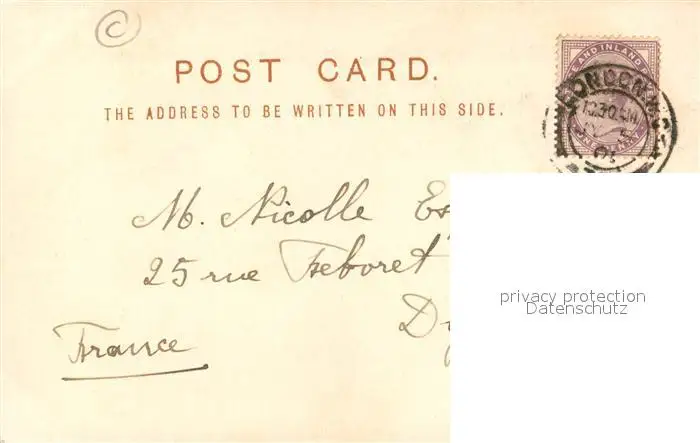 ©
POST CARD.
THE ADDRESS TO BE WRITTEN ON THIS SIDE.
E AND INLAND
LONDON
10.30 AM
01
M. Nicolle Es
25 rue Feboret
D
France
privacy protection
Datenschutz